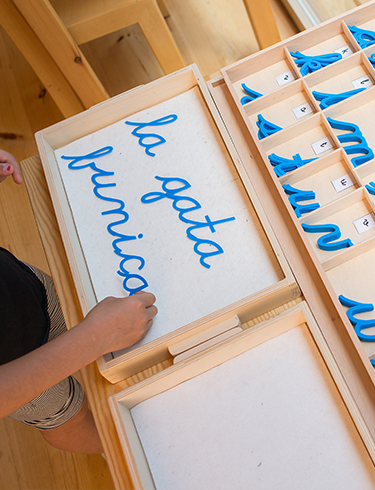 la
gata
bunica